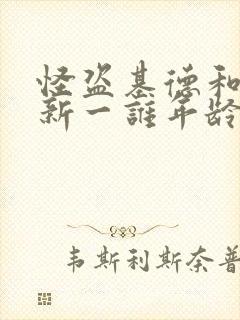 怪盗基德和
新一誰年龄
韦斯利斯奈普